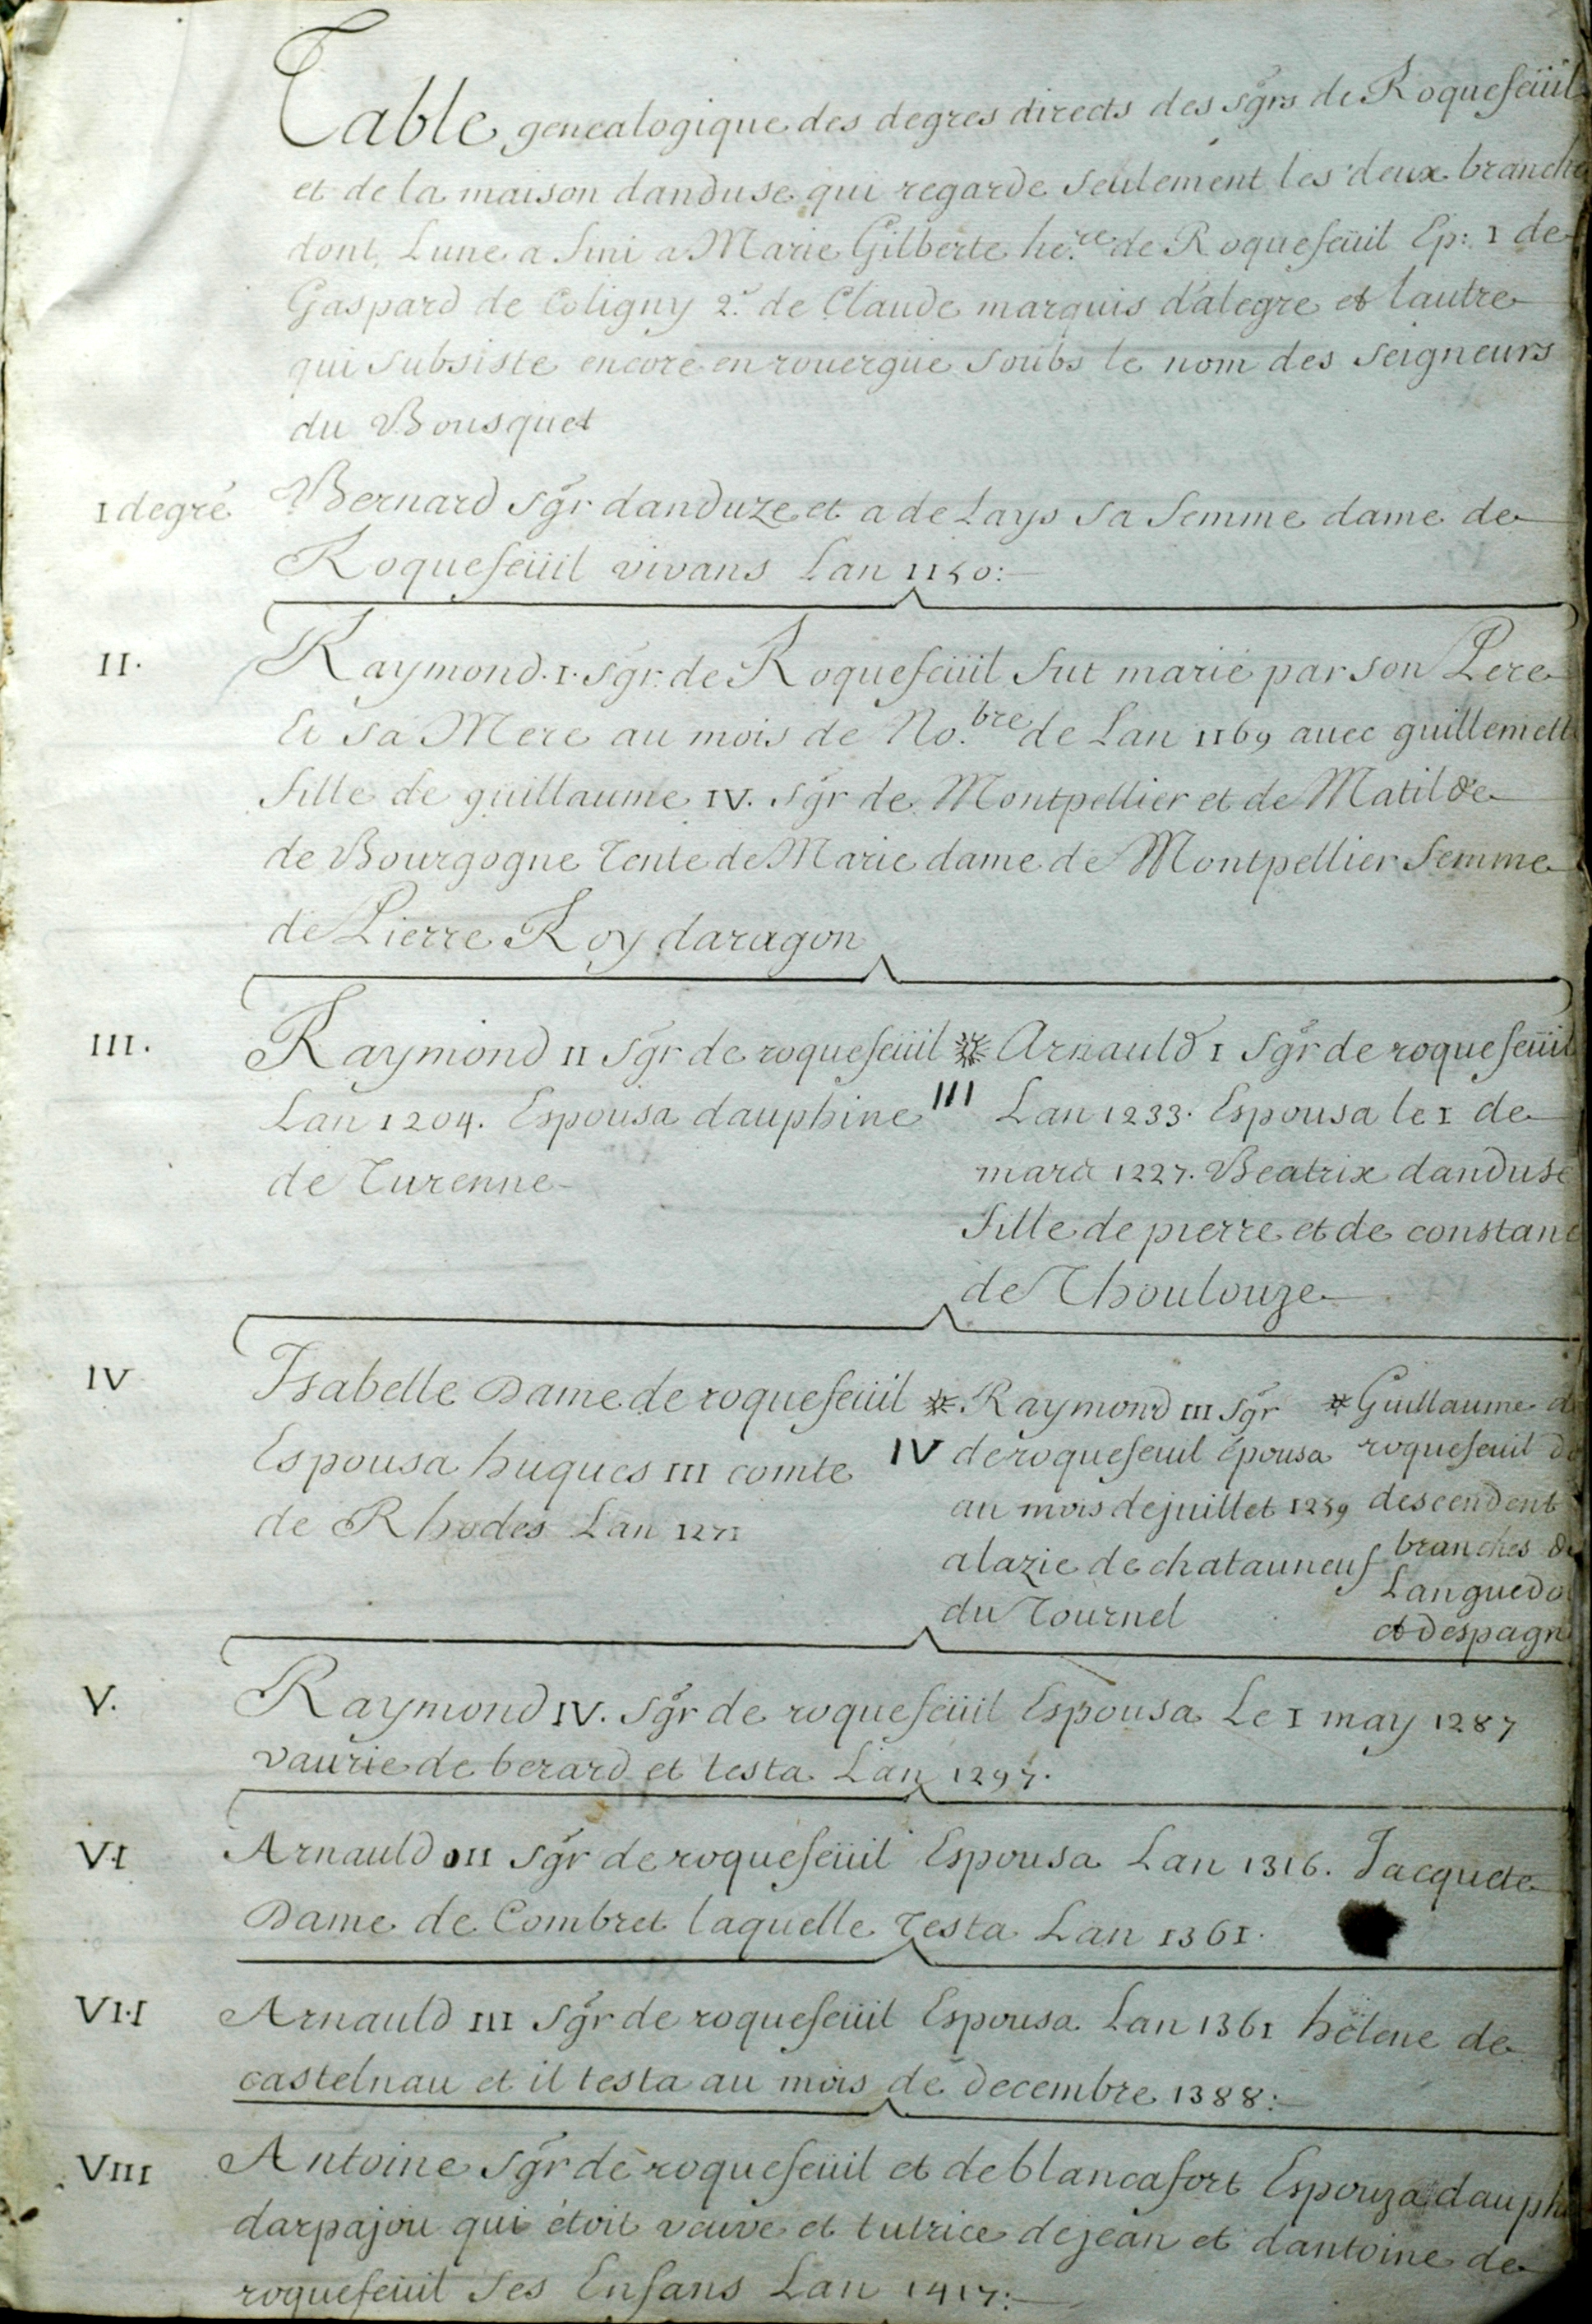 Table genealogique des degres directs des sgrs de Roquefeüil
et de la maison danduse qui regarde seulement les deux branche
dont Lune a fini a Marie Gilberte he.re de Roquefeüil Ep: I de
Gaspard de Coligny 2.° de Claude marquis dalegre et lautre
qui subsiste encore en rouergue soubs le nom des seigneurs
du Bousquet
I degré Bernard sgr danduze et adelays sa femme dame de
Roquefeüil vivans Lan 1150:
II. Raymond .I. sgr de Roquefeüil fut marié par son Pere
Et sa Mere au mois de No.bre de Lan 1169 avec guillemett
fille de guillaume IV. sgr de Montpellier et de Matilde
de Bourgogne Tente de Marie dame de Montpellier femme
de Pierre Roy daragon
III. Raymond II sgr de roquefeüil
Lan 1204. Espousa dauphine
de Turenne
III Arnauld I sgr de roquefeüil
Lan 1233. Espousa le I de
mars 1227. Beatrix danduse
fille de pierre et de constanc
de Thoulouze
IV Isabelle Dame de roquefeüil
Espousa hugues III comte
de Rhodes Lan 1271
IV Raymond III sgr
de roquefeuil Epousa
au mois de juillet 1239
alazie de chatauneuf
du Tournel
Guillaume d
roquefeuil do
descendent
branches de
Languedo
et despagn
V. Raymond IV. sgr de roquefeüil Espousa Le I may 1287
vaurie de berard et testa Lan 1297.
VI Arnauld II sgr de roquefeüil Espousa Lan 1316. Jacquete
Dame de Combret laquelle Testa Lan 1361.
VII Arnauld III sgr de roquefeüil Espousa Lan 1361 hélene de
castelnau et il testa au mois de decembre 1388:
VIII Antoine sgr de roquefeüil et de blancafort Espouza dauph
darpajou qui étoit veuve et tutrice de jean et dantoine de
roquefeüil ses Enfans Lan 1417: